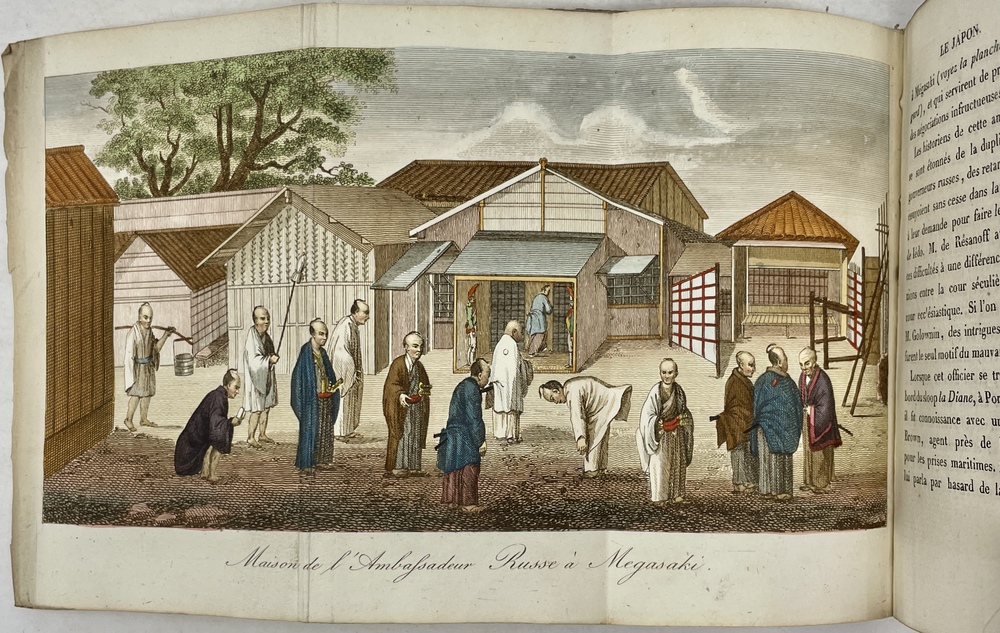 Maison de l'Ambaſsadeur Russe à Megasaki.
LE JAPON.
à Mégasaki (voyez la planche
gard), et qui servirent de pr
des négociations infructueuses
Les historiens de cette am
sont étonnés de la dupl
gouverneurs russes, des retar
envoyoient sans cesse dans la
à leur demande pour faire le
de Iédo. M. de Résanoff a
ces difficultés à une différenc
entre la cour séculiè
cour ecclésiastique. Si l'on
M. Golownin, des intrigues
furent le seul motif du mauva
Lorsque cet officier se tr
bord du sloop la Diane, à Po
il fit connoissance avec u
Brown, agent près de
pour les prises maritimes.
lui parla par hasard de la